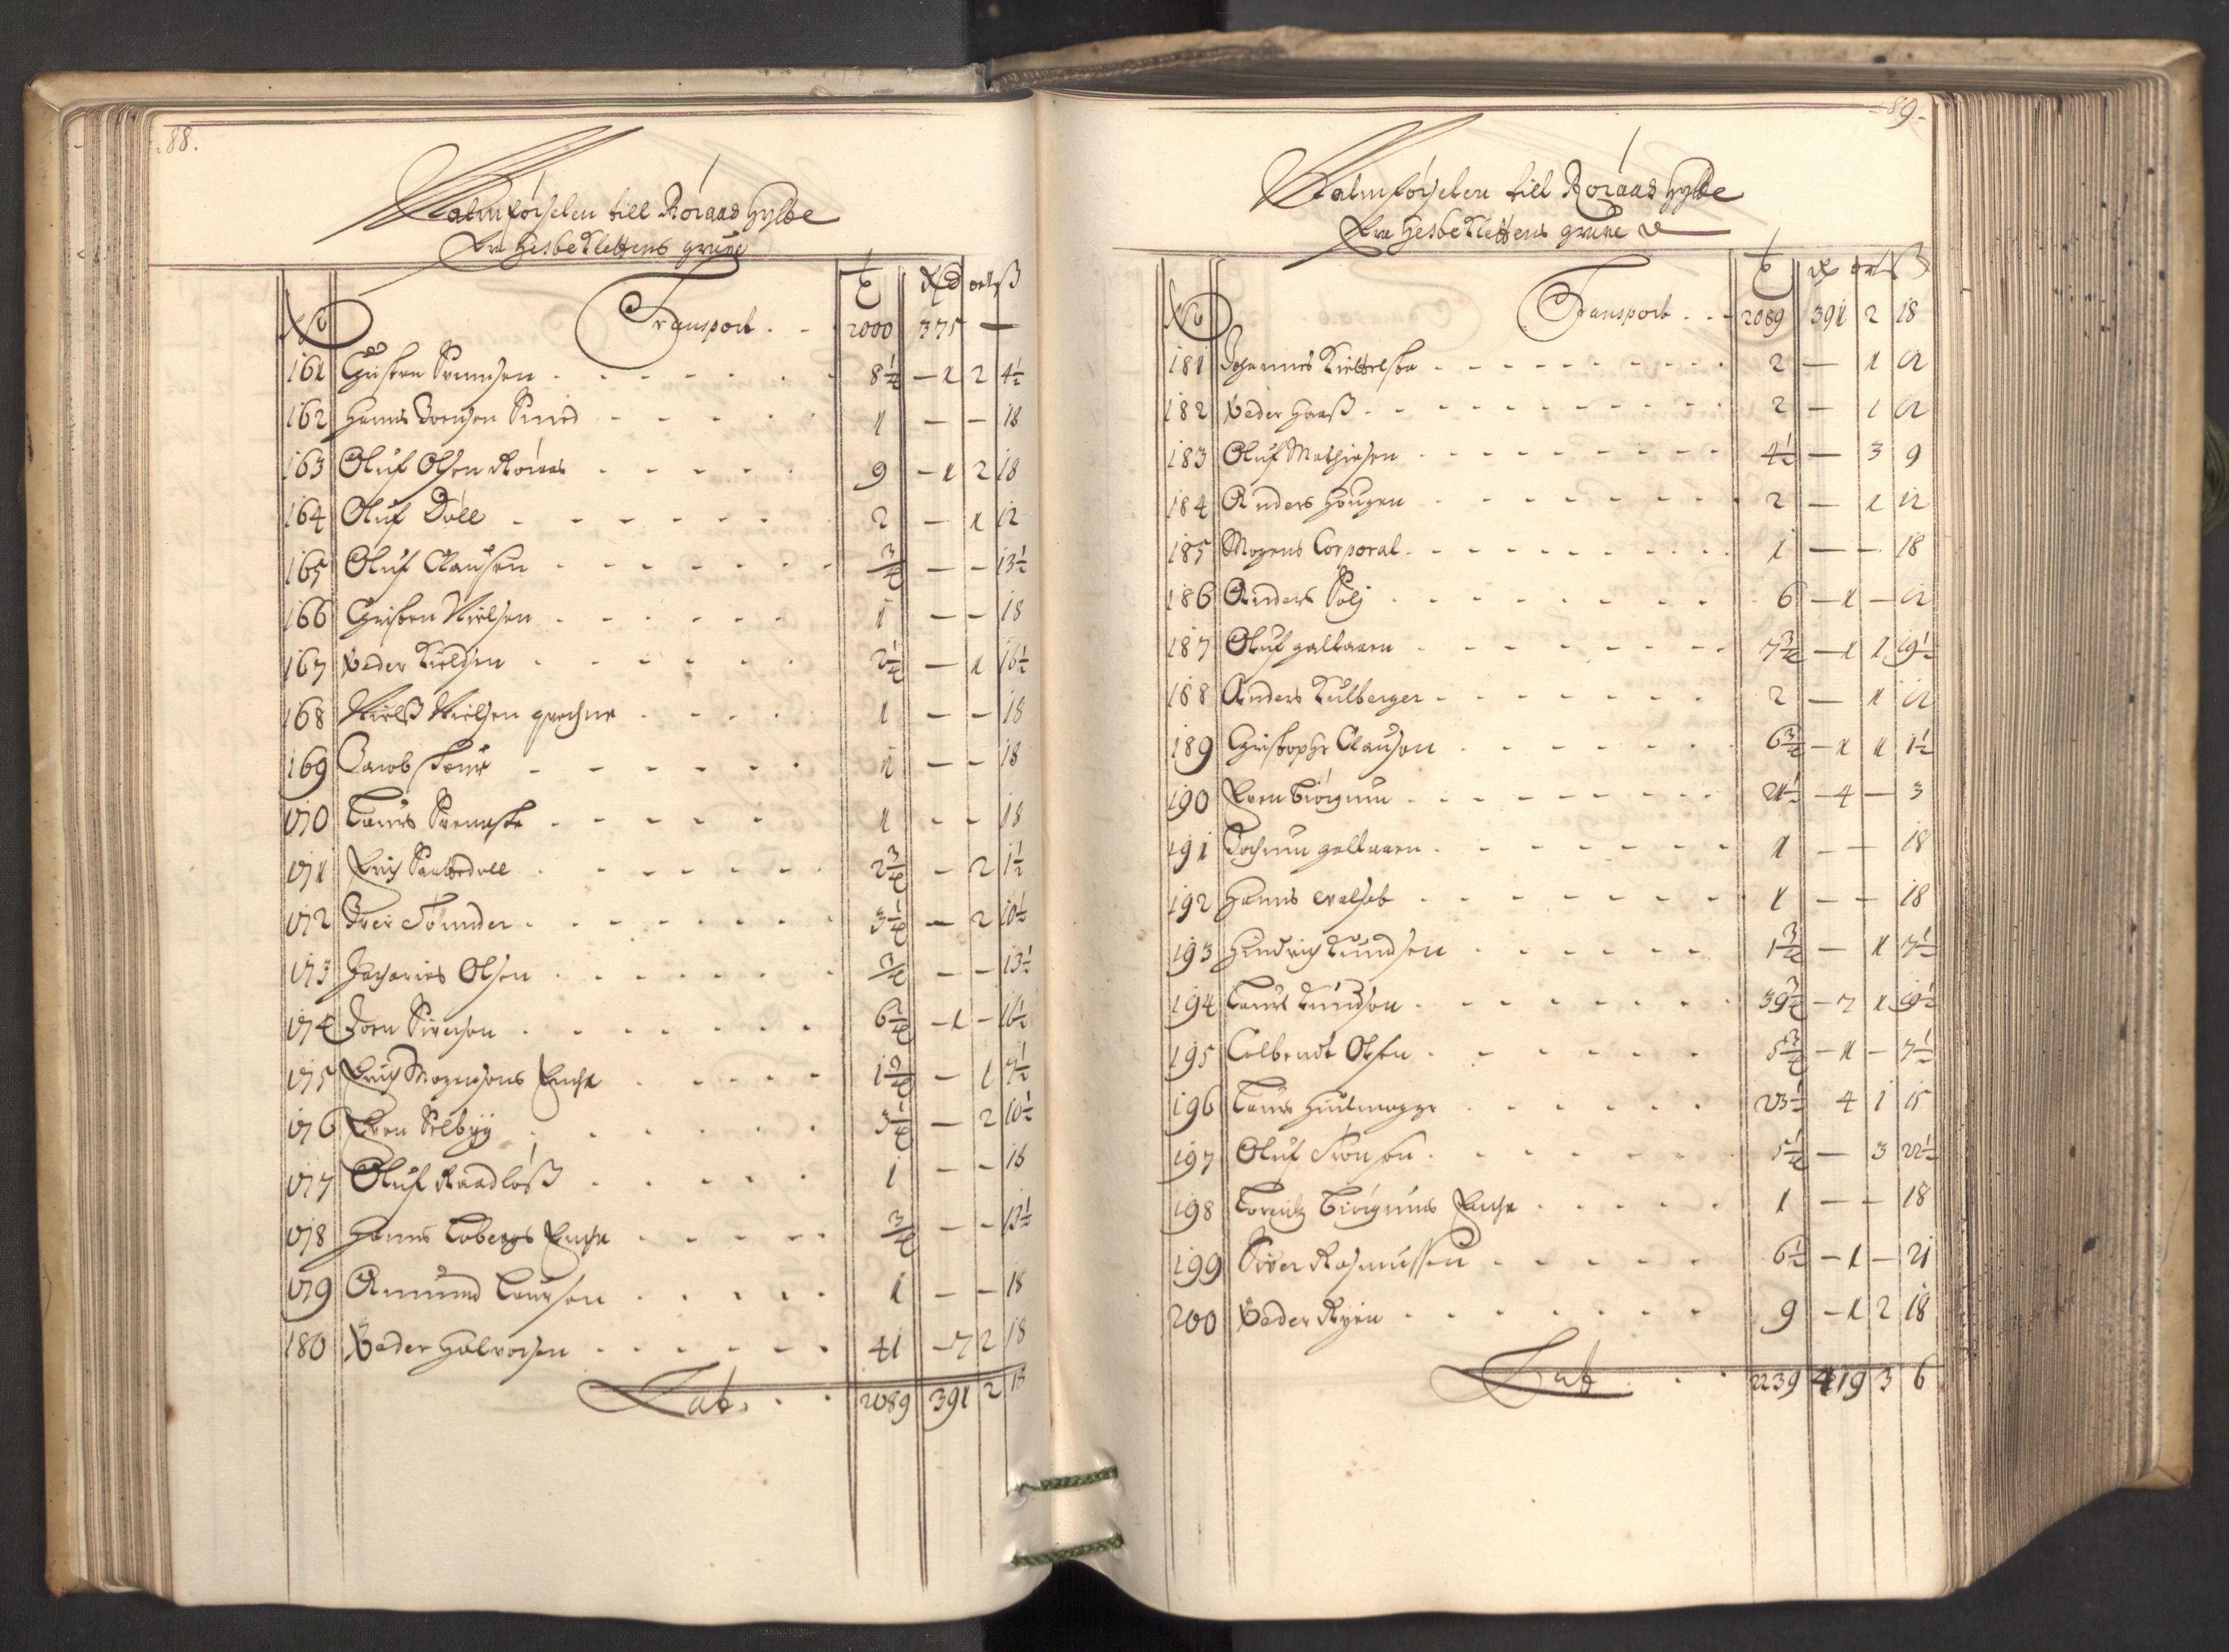 88.
Malmkørselen till Røraas Hytte
Fra Hesteklettens grube
No t Rd ort ß
Transport . . 2000 375 —
161 Christen Svendsen . . . . 8½ — 1 2 4½
162 Hanns Joensen Smed . . . . 1 — — 18
163 Oluf Olsen Røraas . . . . 9 — 1 2 18
164 Oluf Döll . . . . 2 — 1 12
165 Oluf Clausen . . . . ¾ — — 13½
166 Christen Nielsen . . . . 1 — — 18
167 Peder Kieldsen . . . . 2¼ — 1 16½
168 Nielß Nielsen . . . . 1 — — 18
169 Jacob . . . . 1 — — 18
170 Laurs Svenske . . . . 1 — — 18
171 Erich . . . . 2¾ — 2 1½
172 Iver Tønder . . . . 3¼ — 2 10½
173 Zacharies Olsen . . . . ¾ — — 13½
174 Joen Siversen . . . . 6¼ — 1 — 16½
175 Erich Mogensøns Enche . . . . 1¾ — 1 7½
176 Even Selbyg . . . . 3¼ — 2 10½
177 Oluf Raadløß . . . . 1 — — 18
178 Hanns Tobergs Enche . . . . ¾ — — 13½
179 Amund Laursen . . . . 1 — — 18
180 Peder Halvorsen . . . . 41 — 7 2 18
Lat. . . 2089 391 2 18
89.
Malmkørselen till Røraas Hytte
Fra Hesteklettens grube
No t Rd ort ß
Transport . . 2089 391 2 18
181 Johannes Kiettelsen . . . . 2 — 1 12
182 Peder Haaß . . . . 2 — 1 12
183 Oluf Mathiesen . . . . 4½ — 3 9
184 Anders Hougen . . . . 2 — 1 12
185 Mogens Corporal . . . . 1 — — 18
186 Anders Sølj . . . . 6 — 1 — 12
187 Oluf galtaaen . . . . 7¾ — 1 1 19½
188 Anders Kulberger . . . . 2 — 1 12
189 Christopher Clausen . . . . 6¾ — 1 1 1½
190 Even Tiørgum . . . . 21½ — 4 — 3
191 Jochum galtaaen . . . . 1 — — 18
192 Hanns . . . . 1 — — 18
193 Hendrich Knudsen . . . . 1¾ — 1 7½
194 Laurs Knudsøn . . . . 39¾ — 7 1 19½
195 Colbendt Olsen . . . . 5¾ — 1 — 7½
196 Laurs Hiulmager . . . . 23½ 4 1 15
197 Oluf Tronsøn . . . . 5¼ — 3 22½
198 Lorentz Tiørgums Enche . . . . 1 — — 18
199 Siver Rasmussen . . . . 6½ — 1 — 21
200 Peder Ryen . . . . 9 — 1 2 18
Lat. . . 2239 419 3 6